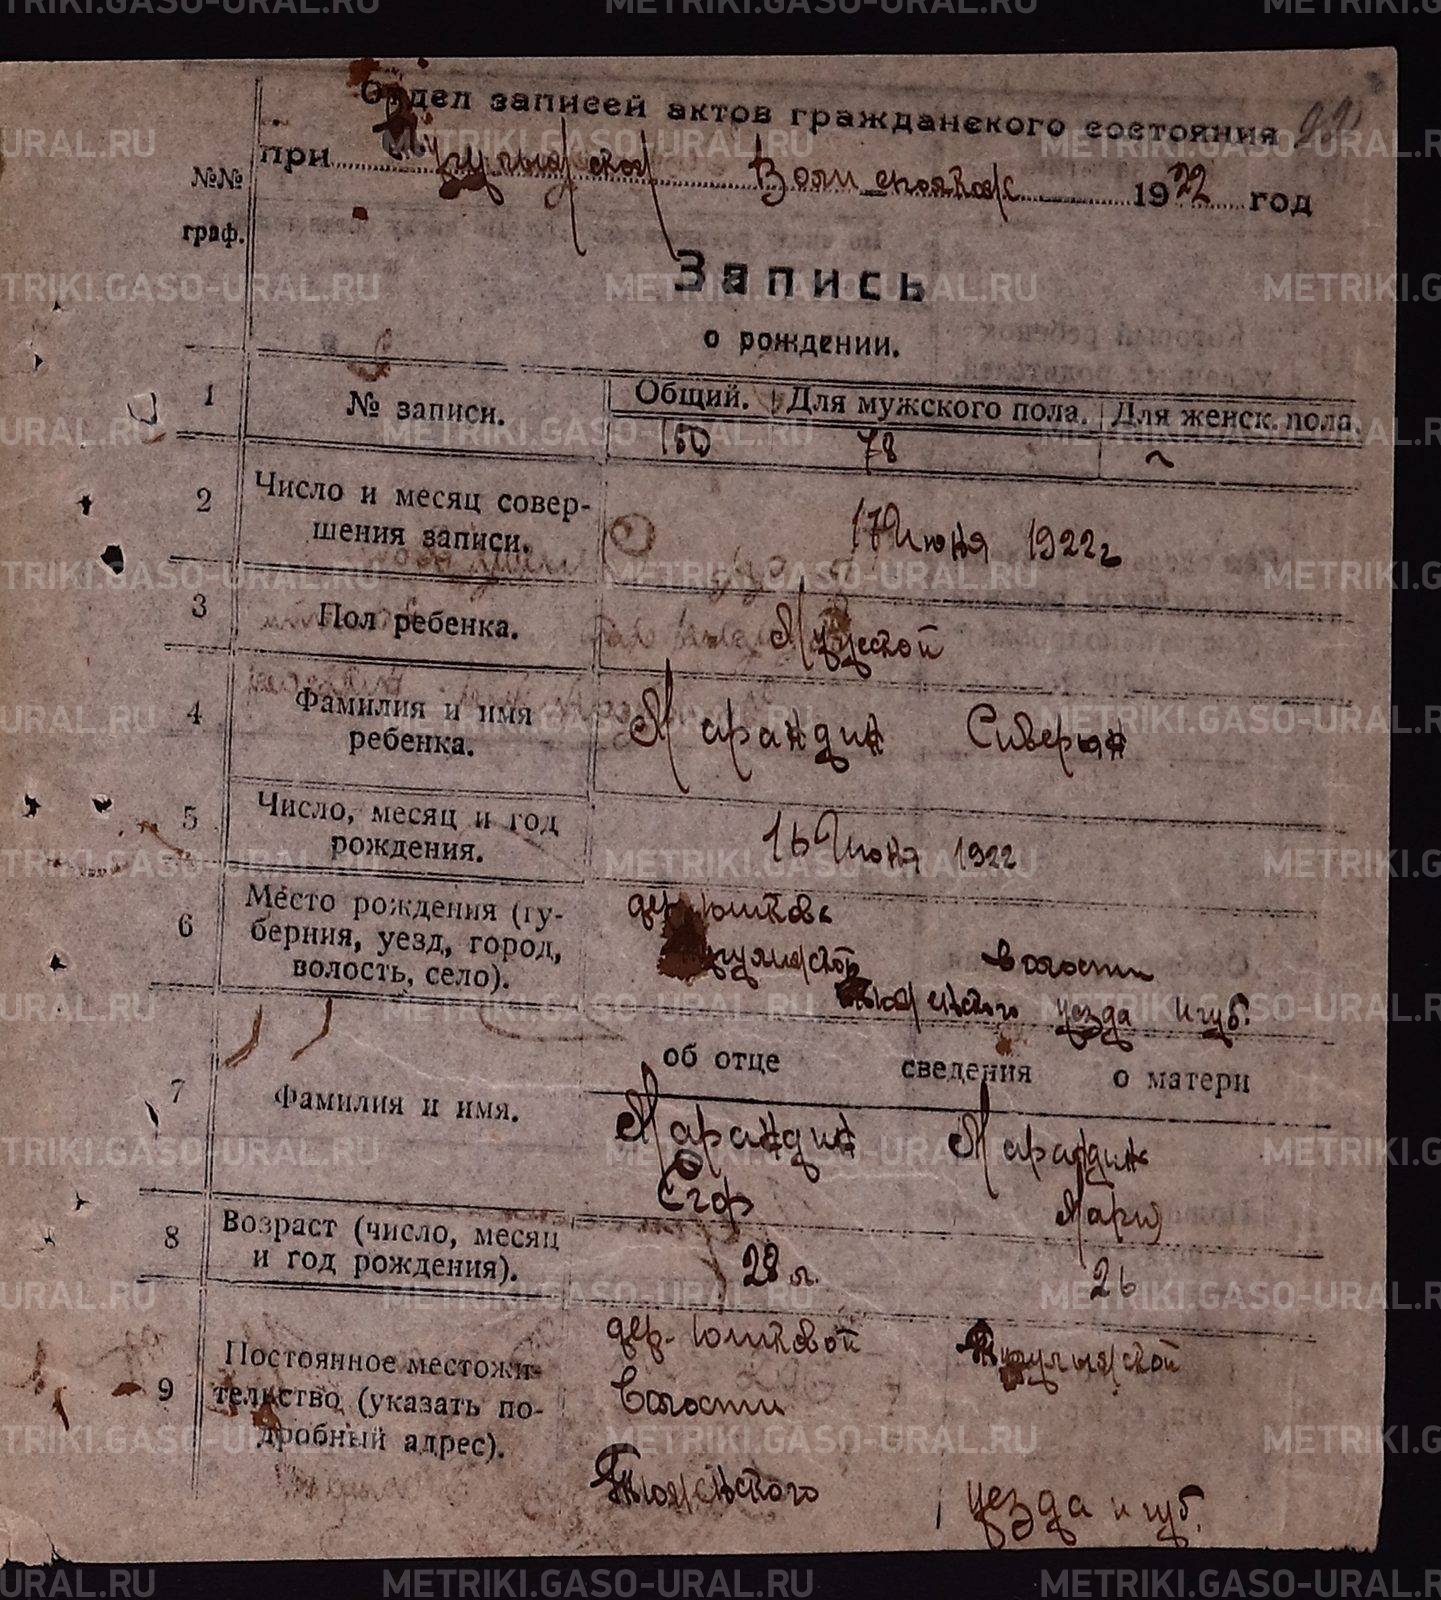 Отдел записей актов гражданского состояния
при Волисполкоме 1922 год
№№ граф.
Запись
о рождении.
1 № записи. Общий. Для мужского пола. Для женск. пола.
150 78 ~
2 Число и месяц совер-
шения записи. 17 Июня 1922 г
3 Пол ребенка. Мужской
4 Фамилия и имя
ребенка. Марандин Северьян
5 Число, месяц и год
рождения. 16 Июня 1922
6 Место рождения (гу-
берния, уезд, город,
волость, село). дер Юшкова
волости
уезда и губ.
об отце сведения о матери
7 Фамилия и имя. Марандин Марандин
Егор Мария
8 Возраст (число, месяц
и год рождения). 28 л. 26
9 Постоянное местожи-
тельство (указать по-
дробный адрес). дер. Юшковой
Волости
уезда и губ.
METRIKI.GASO-URAL.RU